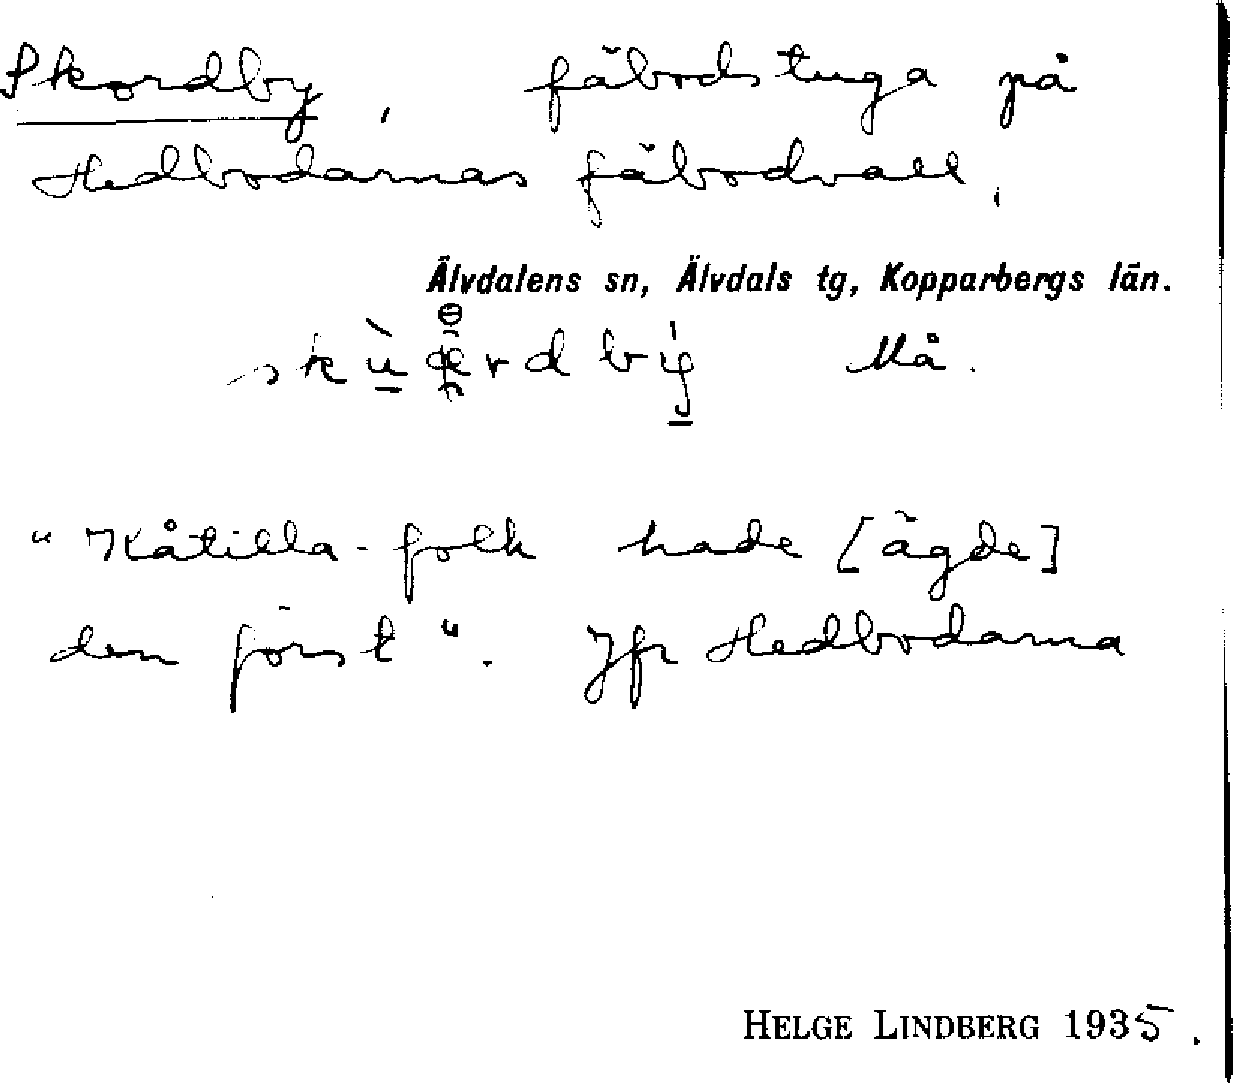 Skordby, fäbodstuga på
Hedbodarnas fäbodvall,
Älvdalens sn, Älvdals tg, Kopparbergs län.
Må.
"Kåtilla-folk hade [ägde]
den först". Jfr Hedbodarna
HELGE LINDBERG 1935.